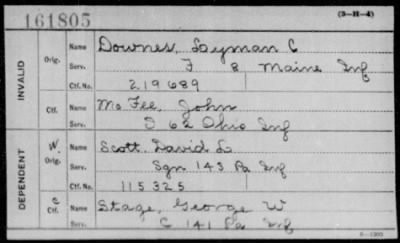 161805
(3-H-4)
INVALID
Orig.
Name
Downes, Lyman C
Serv.
F 8 Maine Inf
Ctf. No.
219689
Ctf.
Name
McFee, John
Serv.
I 62 Ohio Inf
DEPENDENT
W.
Orig.
Name
Scott, David L
Serv.
Sgn 143 Pa Inf
Ctf. No.
115325
C
Ctf.
Name
Stage, George W
Serv.
C 141 Pa Inf